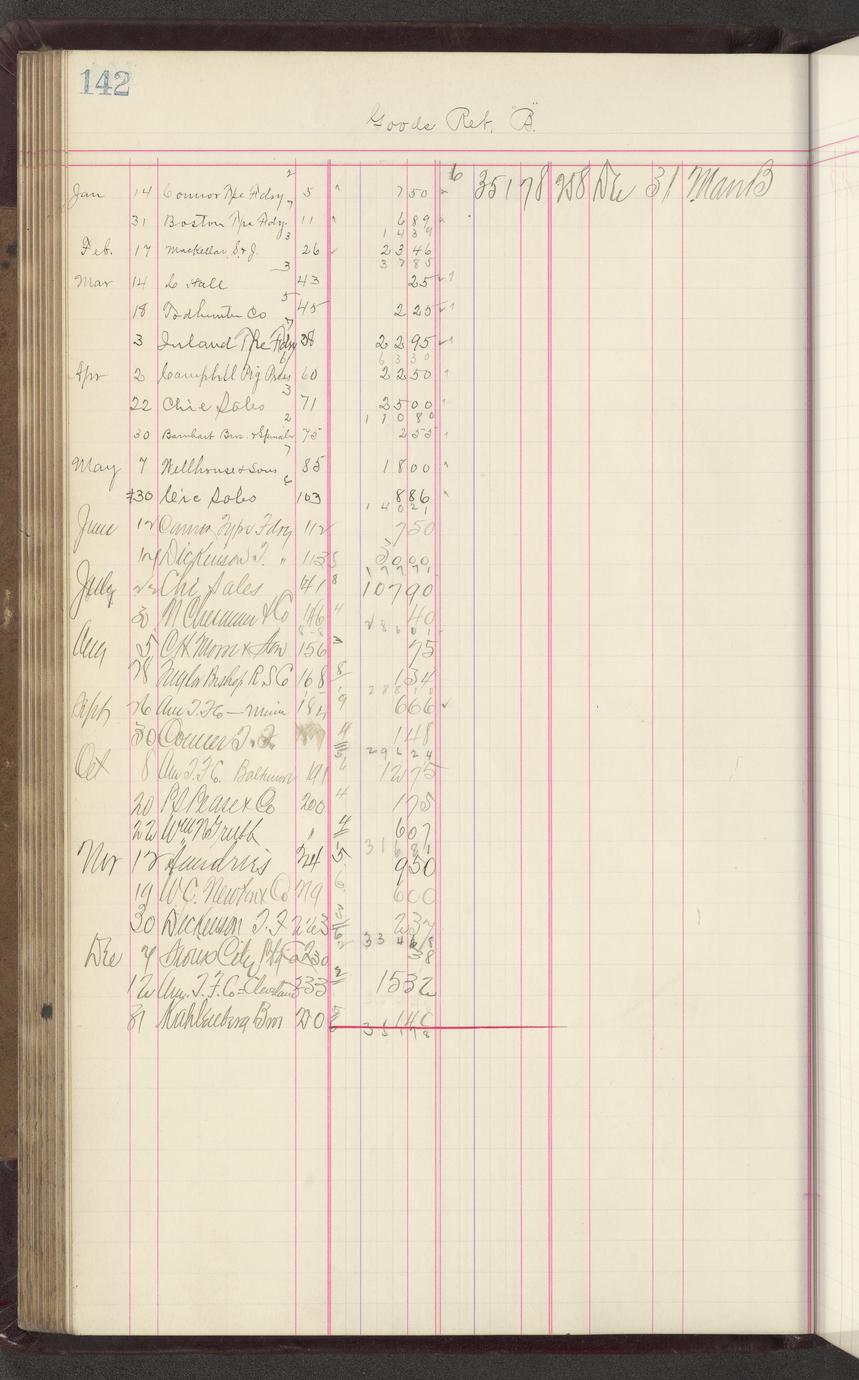 142
Goods Ret. "B."
Jan 14 Connor Type Fdry 2 5 7 50 6 351 78 258 Dec 31 Man B
31 Boston Type Fdry. 7 11 6 89
14 39
Feb. 17 Mackellar S. & J. 3 26 23 46
37 85
Mar 14 C Hall 3 43 25
18 Todhunter Co 5 45 2 25
3 Inland Type Fdry 7 38 22 95
63 30
Apr 2 Campbell Ptg Press 6 60 22 50
22 Chic Sales 3 71 25 00
110 80
30 Barnhart Bros. & Spindler 2 75 2 55
May 7 Wellhouse & Sons 7 85 18 00
30 Chic Sales 6 103 8 86
140 21
June 12 Connor Type Fdry 112 7 50
Dickinson T. " 113 5 30 00
177 71
July 22 Chi Sales 141 8 107 90
30 & Co 146 4 40
286 01
Aug 5 C H Morse & Son 156 3 75
28 Taylor Bishop R S Co 168 8 1 34
288 10
Sept 26 Am T. F Co — Minn 184 9 6 66
30 Conner T. F. 4 1 48
296 24
Oct 8 Am T. F C. Baltimore 191 6 12 75
20 Pease & Co 200 4 1 75
22 Wm N Truth " 4 6 07
316 81
Nov 12 Sundries 214 5 9 50
19 W. C. Co 219 6 6 00
30 Dickinson T. F 223 2 37
334 68
Dec 7 Sioux City Ptg Co 230 38
12 Am. T. F. Co - Cleveland 233 2 15 32
31 Kahlenberg Bros 240 1 40
351 78